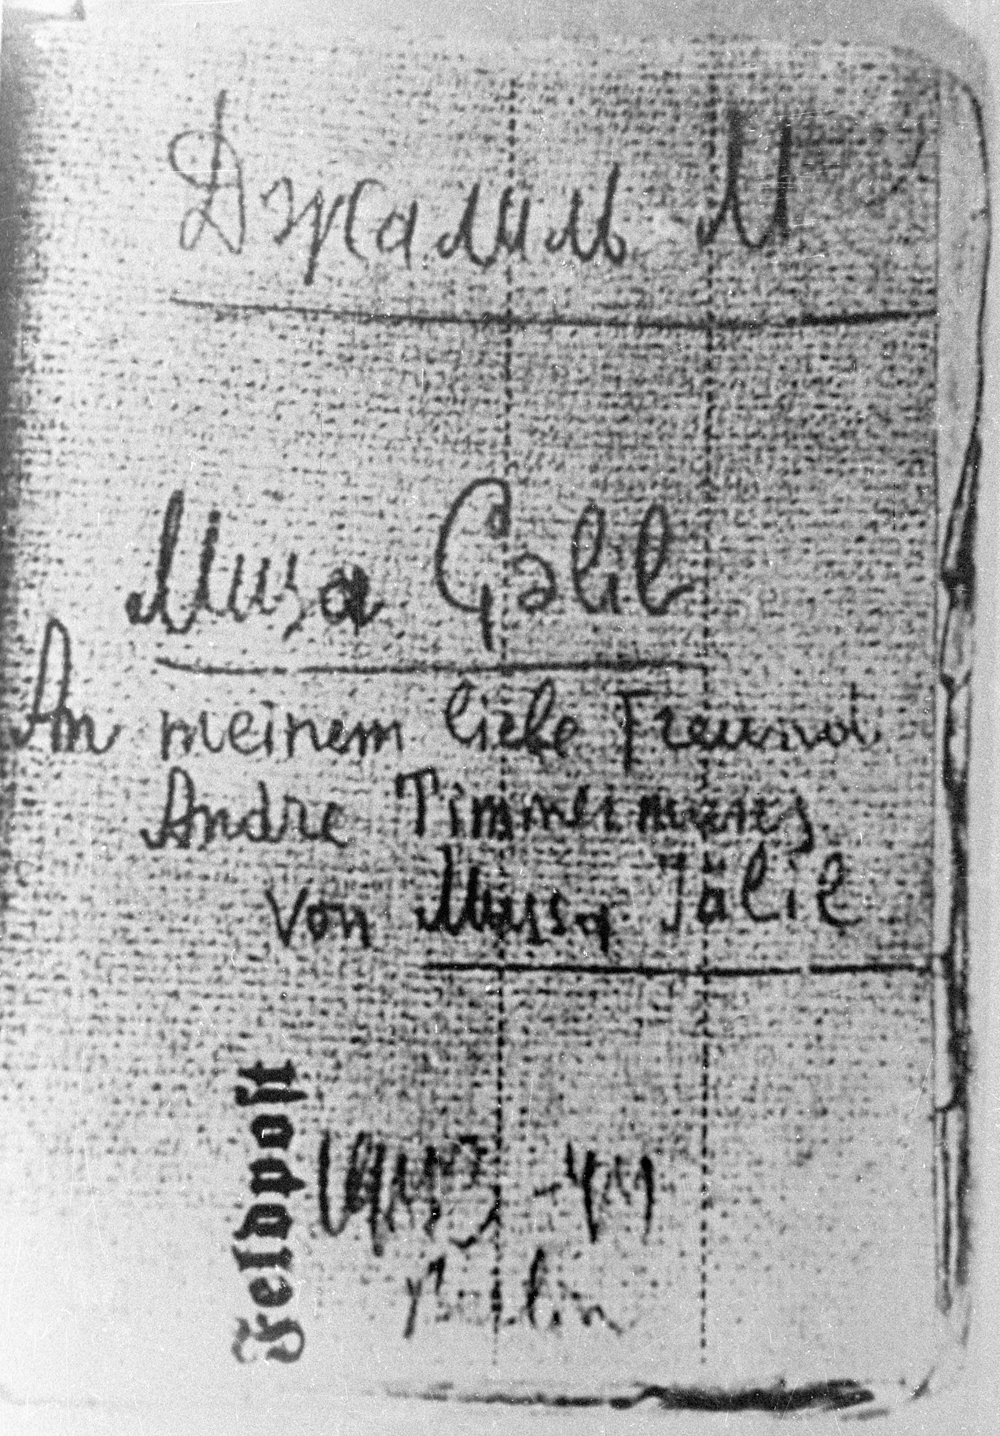 Джалиль М
Musa Çəlil
An meinem liebe Freund
Andre Timmermans
von Mussa Jälil
Feldpoſt
1943 - 44
Berlin